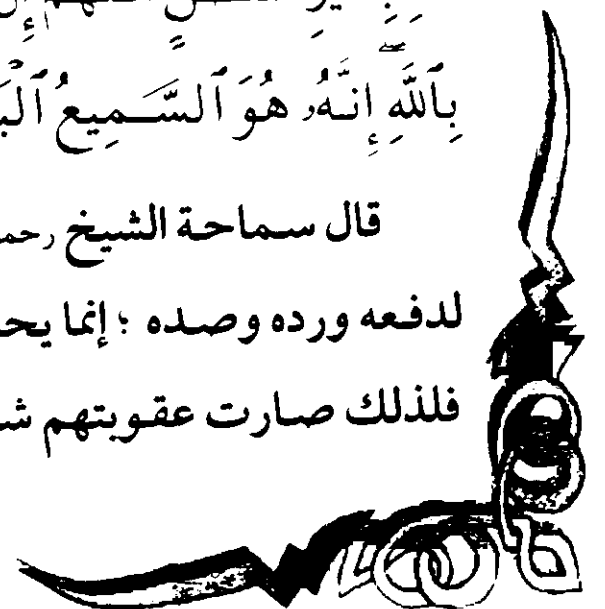 بِٱللَّهِۖ إِنَّهُۥ هُوَ ٱلسَّمِيعُ
قال سماحة الشيخ رحمـ
لدفعه ورده وصده ؛ إنما يحـ
فلذلك صارت عقوبتهم شـ